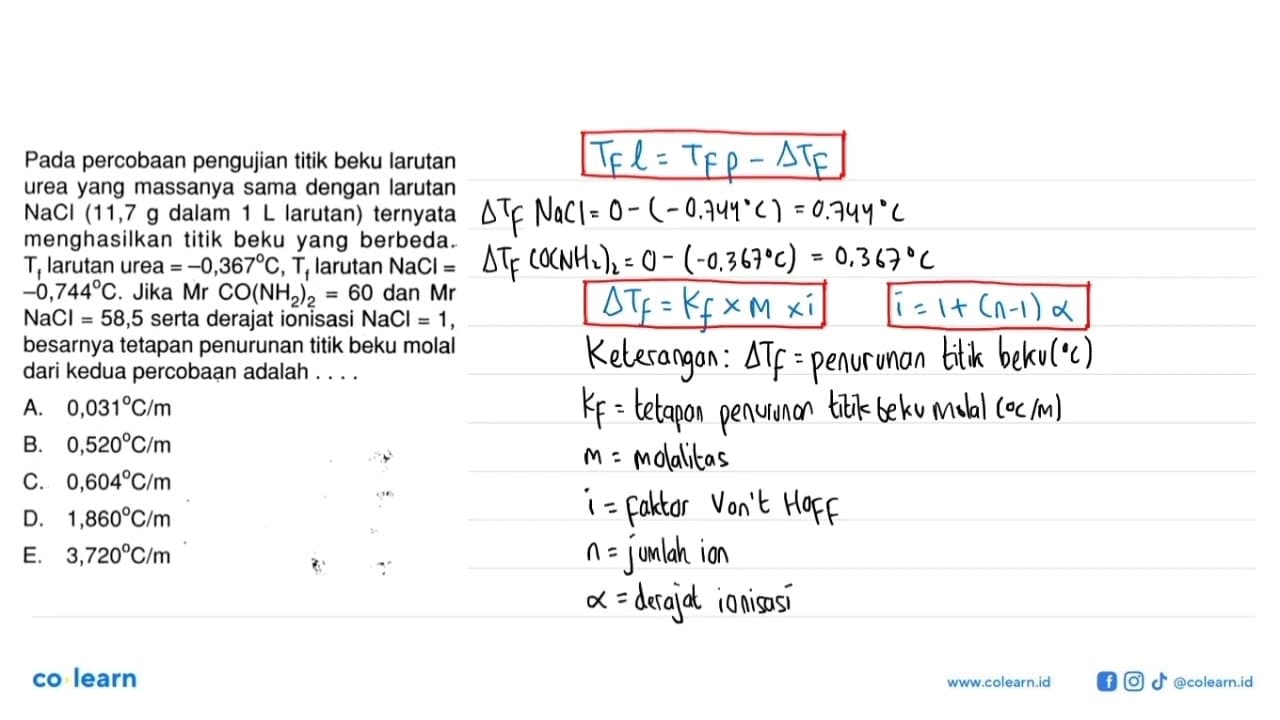 Pada percobaan pengujian titik beku larutan
urea yang massanya sama dengan larutan
NaCl (11,7 g dalam 1 L larutan) ternyata
menghasilkan titik beku yang berbeda.
Tf larutan urea = –0,367°C, Tf larutan NaCl =
–0,744°C. Jika Mr CO(NH₂)₂ = 60 dan Mr
NaCl = 58,5 serta derajat ionisasi NaCl = 1,
besarnya tetapan penurunan titik beku molal
dari kedua percobaan adalah . . . .
A. 0,031°C/m
B. 0,520°C/m
C. 0,604°C/m
D. 1,860°C/m
E. 3,720°C/m
TF l = TF p - ΔTF
ΔTF NaCl = 0 - (-0.744°C) = 0.744°C
ΔTF CO(NH₂)₂ = 0 - (-0.367°C) = 0,367°C
ΔTF = Kf × M × i
i = 1 + (n-1) α
Keterangan: ΔTF = penurunan titik beku (°C)
KF = tetapan penurunan titik beku molal (°C/M)
m = molalitas
i = faktor Van't HoFF
n = jumlah ion
α = derajat ionisasi
co learn
www.colearn.id
@colearn.id